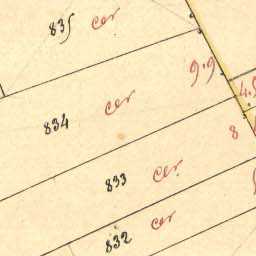 835 cer
9.9
834 cer
8
833 cer
832 cer